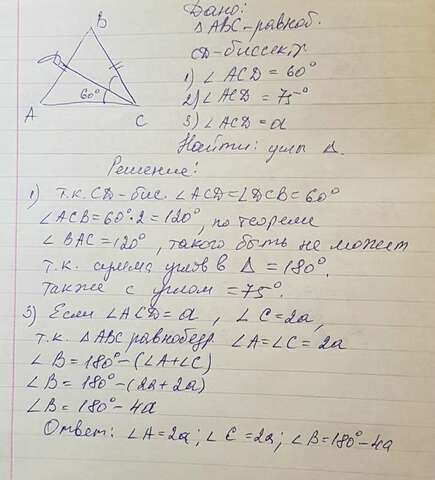 Дано:
△ ABC - равноб.
CD - биссек,
1) ∠ ACD = 60°
2) ∠ ACD = 75°
3) ∠ ACD = a
Найти: углы △.
B
D
60°
A
C
Решение:
1) т.к. CD - бис. ∠ ACD = ∠ DCB = 60°
∠ ACB = 60°·2 = 120°, по теореме
∠ BAC = 120°, такого быть не может
т.к. сумма углов в △ = 180°.
Также с углом = 75°.
3) Если ∠ ACD = a, ∠ C = 2a,
т.к. △ ABC равнобедр ∠ A = ∠ C = 2a
∠ B = 180° - (∠ A + ∠ C)
∠ B = 180° - (2a + 2a)
∠ B = 180° - 4a
Ответ: ∠ A = 2a; ∠ C = 2a; ∠ B = 180° - 4a